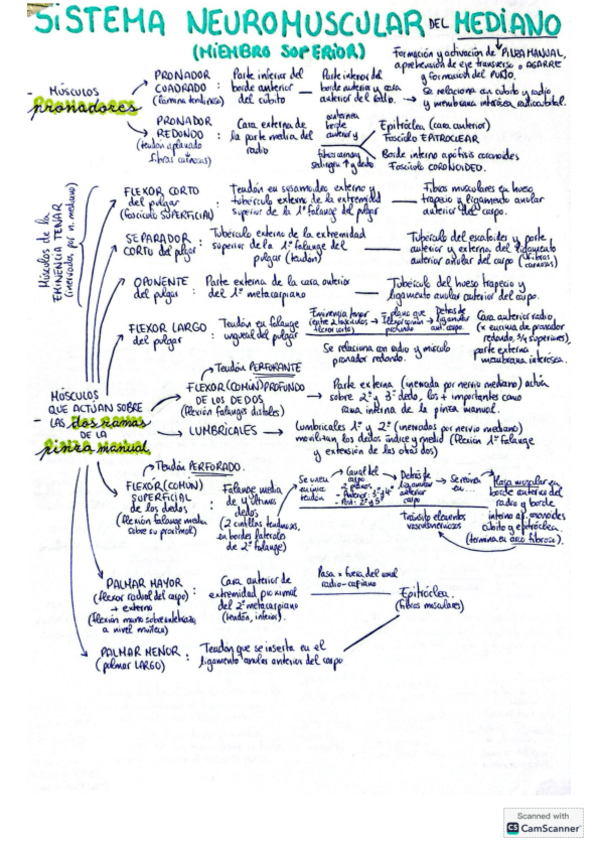 SISTEMA NEUROMUSCULAR DEL MEDIANO
(MIEMBRO SUPERIOR)
Formación y activación de PINZA MANUAL,
aprehensión de eje transverso o AGARRE
y formación del PUÑO.
- MÚSCULOS
pronadores
PRONADOR
CUADRADO :
(lámina tendinosa)
Parte inferior del
borde anterior
del cúbito
Parte inferior del
borde anterior y cara
anterior del radio.
Se relaciona con cúbito y radio
y membrana interósea radiocubital.
PRONADOR
REDONDO :
(tendón aplanado
fibras carnosas)
Cara externa de
la parte media del
radio
borde
anterior y
Epitróclea (cara anterior)
Fascículo EPITROCLEAR
Borde interno apófisis coronoides
Fascículo CORONOIDEO.
Músculos de la
EMINENCIA TENAR
(inervados por n. mediano)
FLEXOR CORTO
del pulgar :
(fascículo SUPERFICIAL)
Tendón en sesamoideo externo y
tubérculo externo de la extremidad
superior de la 1ª falange del pulgar
Fibras musculares en hueso
trapecio y ligamento anular
anterior del carpo.
SEPARADOR
CORTO del pulgar :
Tubérculo externo de la extremidad
superior de la 1ª falange del
pulgar (tendón)
Tubérculo del escafoides y parte
anterior y externa del ligamento
anterior anular del carpo (fibras
carnosas)
OPONENTE :
del pulgar
Parte externa de la cara anterior
del 1º metacarpiano
Tubérculo del hueso trapecio y
ligamento anular anterior del carpo.
FLEXOR LARGO :
del pulgar
Tendón en falange
ungueal del pulgar
Eminencia tenar
(entre 2 fascículos
flexor corto)
profundo
Detrás de
ligamento
ant. carpo
Cara anterior radio,
(x encima de pronador
redondo, 3/4 superiores),
parte externa
membrana interósea.
Se relaciona con radio y músculo
pronador redondo.
MÚSCULOS
- QUE ACTÚAN SOBRE
LAS dos ramas
DE LA
pinza manual
Tendón PERFORANTE
FLEXOR (COMÚN) PROFUNDO
DE LOS DEDOS
(Flexión falanges distales)
Parte externa (inervada por nervio mediano) actúa
sobre 2º y 3º dedo, los + importantes como
rama interna de la pinza manual.
LUMBRICALES
Lumbricales 1º y 2º (inervados por nervio mediano)
movilizan los dedos índice y medio (flexión 1ª falange
y extensión de las otras dos)
Tendón PERFORADO.
FLEXOR (COMÚN)
SUPERFICIAL :
de los dedos
(flexión falange media
sobre su proximal)
Falange media
de 4 últimos
dedos
(2 cintillas tendinosas,
en bordes laterales
de 2ª falange)
Se unen
en único
tendón
Canal del
carpo
2 planos
- Anterior: 3º y 4º
- Post: 2º y 5º
Detrás de
ligamento
anterior
carpo
Se reúnen
en...
Masa muscular en
borde anterior del
radio y borde
interno ap. coronoides
cúbito y epitróclea.
(termina en arco fibroso).
Tránsito elementos
vasculonerviosos
PALMAR MAYOR
(flexor radial del carpo) :
→ externo
(flexión mano sobre antebrazo
a nivel muñeca)
Cara anterior de
extremidad proximal
del 2º metacarpiano
(tendón, inferior).
Pasa x fuera del canal
radio-carpiano
Epitróclea
(fibras musculares)
PALMAR MENOR :
(palmar LARGO)
Tendón que se inserta en el
ligamento anular anterior del carpo
Scanned with
CS CamScanner